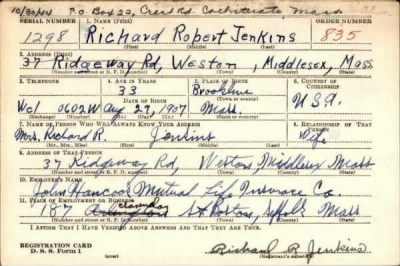 10/30/44 P.O. Box 22, Crest Rd. Cochituate, Mass.
SERIAL NUMBER 1. NAME (Print) ORDER NUMBER
1298 Richard Robert Jenkins 835
(First) (Middle) (Last)
2. ADDRESS (Print)
37 Ridgeway Rd, Weston, Middlesex, Mass
(Number and street or R. F. D. number) (Town) (County) (State)
3. TELEPHONE 4. AGE IN YEARS 5. PLACE OF BIRTH 6. COUNTRY OF CITIZENSHIP
33 Brookline
DATE OF BIRTH (Town or county)
Wel 0602W Aug 27, 1907 Mass. USA.
(Exchange) (Number) (Mo.) (Day) (Yr.) (State or country)
7. NAME OF PERSON WHO WILL ALWAYS KNOW YOUR ADDRESS 8. RELATIONSHIP OF THAT PERSON
Mrs. Richard R. Jenkins Wife
(Mr., Mrs., Miss) (First) (Middle) (Last)
9. ADDRESS OF THAT PERSON
37 Ridgeway Rd, Weston, Middlesex Mass
(Number and street or R. F. D. number) (Town) (County) (State)
10. EMPLOYER'S NAME
John Hancock Mutual Life Insurance Co.
11. PLACE OF EMPLOYMENT OR BUSINESS
Clarendon
197 St Boston, Suffolk Mass
(Number and street or R. F. D. number) (Town) (County) (State)
I AFFIRM THAT I HAVE VERIFIED ABOVE ANSWERS AND THAT THEY ARE TRUE.
REGISTRATION CARD
D. S. S. Form 1 Richard R. Jenkins
(Registrant's signature)